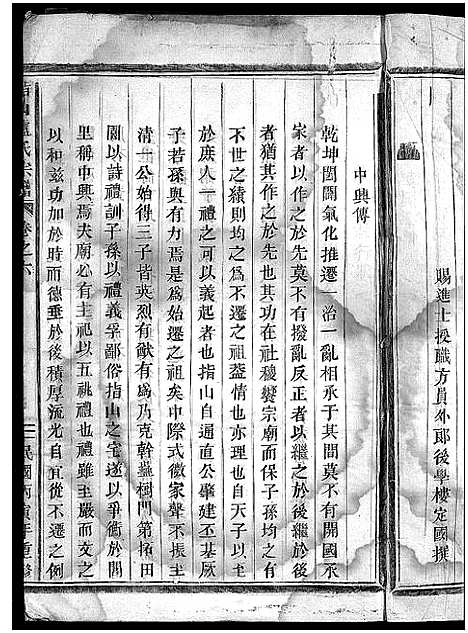 賜進士授職方員外郎後學樓定國撰
中興傳
乾坤闔闢氣化推遷一治一亂相承于其間莫不有開國承
家者以作之於先莫不有撥亂反正者以繼之於後繼於後
者猶其作於先也均以功在社稷饗宗廟而保子孫均之有
不世之績則均之為不遷情也亦理也自天子以至
於庶人一禮之可以義起者也指山自遁直公肇建丕基厥
子若孫與有力焉是為始遷之祖矣中際式微家聲不振至
清一公始得三子皆英烈有猷有為乃克幹蠱樹門第拓田
園以詩禮訓子孫以禮義孚鄙俗指山之宅遂以爭衡於閭
里稱中興焉夫廟必有主祀以五祧禮也禮雖至嚴而文之
以和茲功加於時而德垂於後積厚流光自宜從不遷之例
氏宗譜
卷之六
民國
年重修